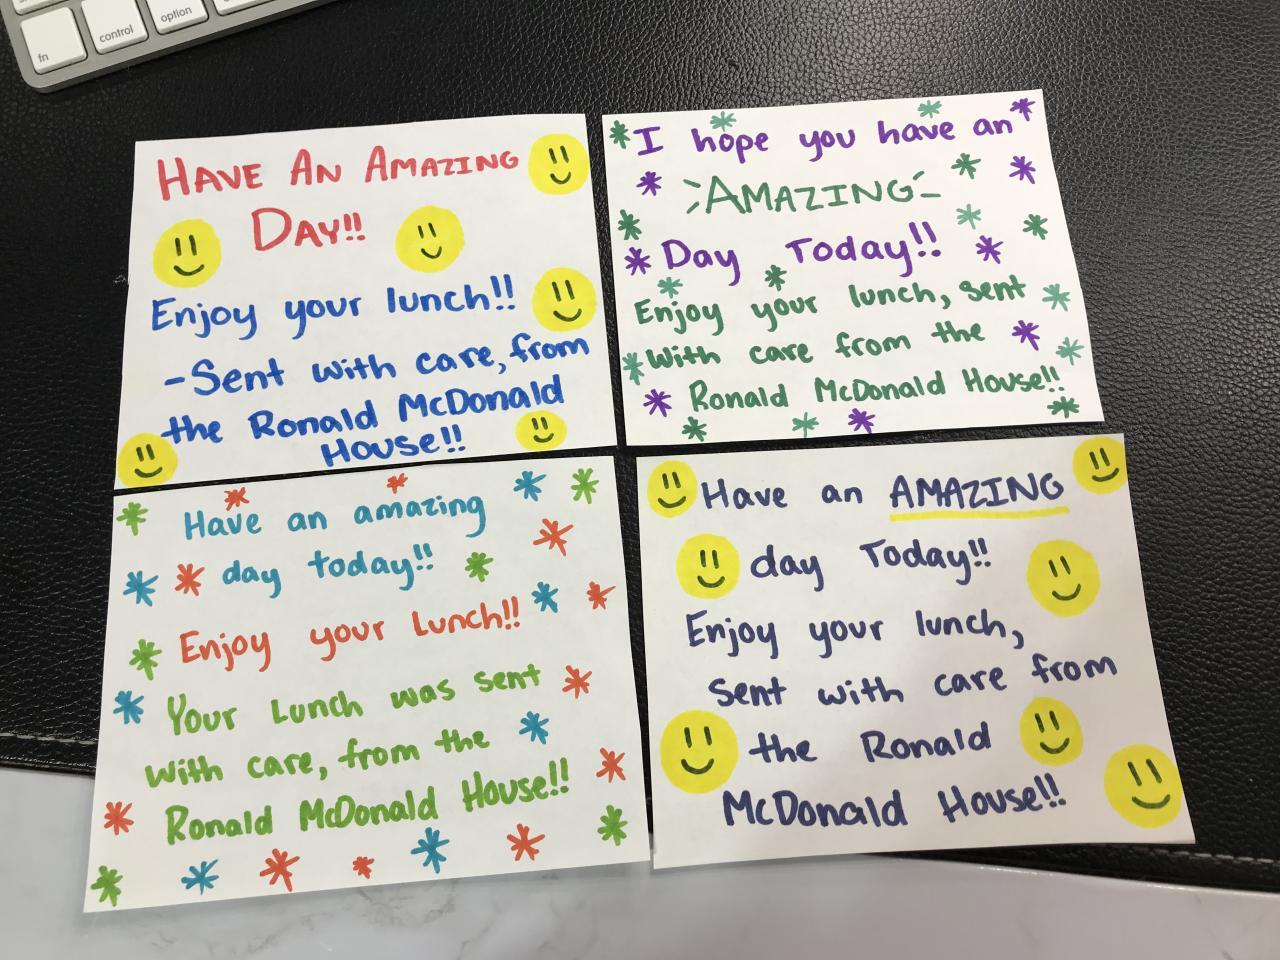 fn
control
option
HAVE AN AMAZING
DAY!!
Enjoy your lunch!!
-Sent with care, from
the Ronald McDonald
House!!
I hope you have an
AMAZING
Day Today!!
Enjoy your lunch, sent
with care from the
Ronald McDonald House!!
Have an amazing
day today!!
Enjoy your Lunch!!
Your Lunch was sent
with care, from the
Ronald McDonald House!!
Have an AMAZING
day Today!!
Enjoy your lunch,
Sent with care from
the Ronald
McDonald House!!